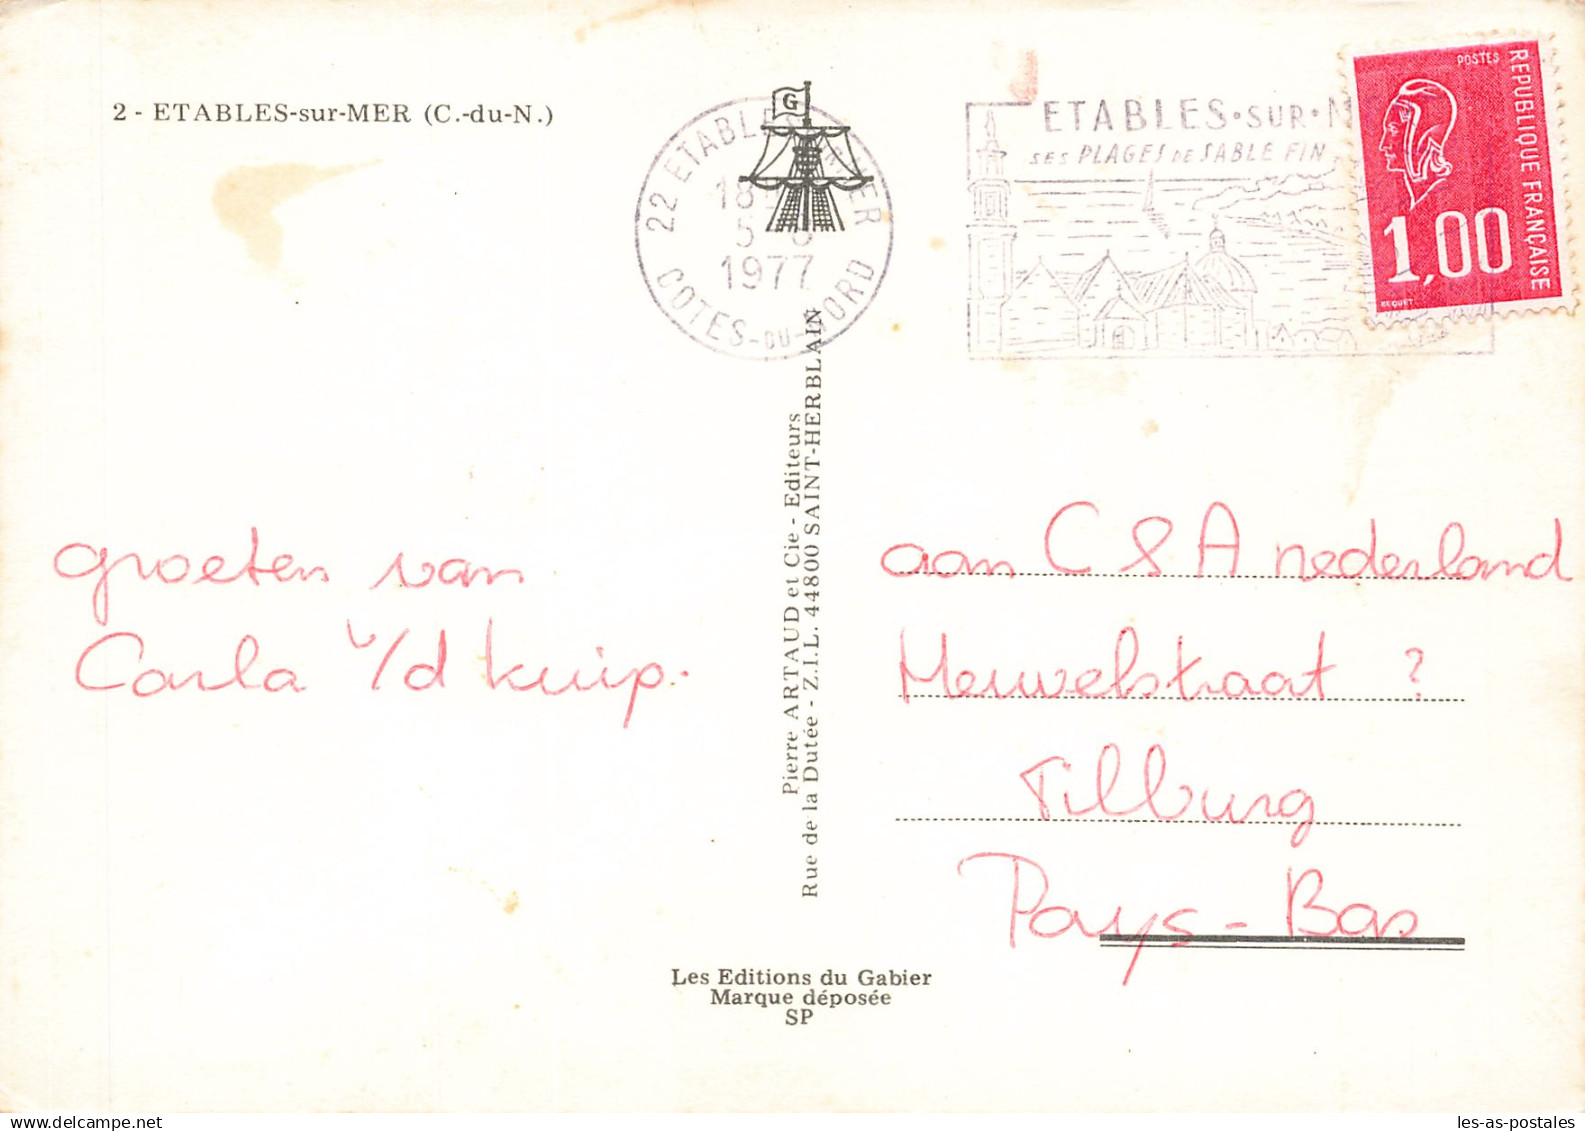 2 - ETABLES-sur-MER (C.-du-N.)
G
22 ETABLES SUR MER
18
5 8
1977
COTES-DU-NORD
ETABLES•SUR•M
SES PLAGES DE SABLE FIN
POSTES
REPUBLIQUE FRANÇAISE
1,00
BEQUET
groeten van
Carla v/d kuip.
Pierre ARTAUD et Cie - Editeurs
Rue de la Dutée - Z.I.L. 44800 SAINT-HERBLAIN
aan C & A nederland
Meuwelstraat ?
Tilburg
Pays-Bas
Les Editions du Gabier
Marque déposée
SP
les-as-postales